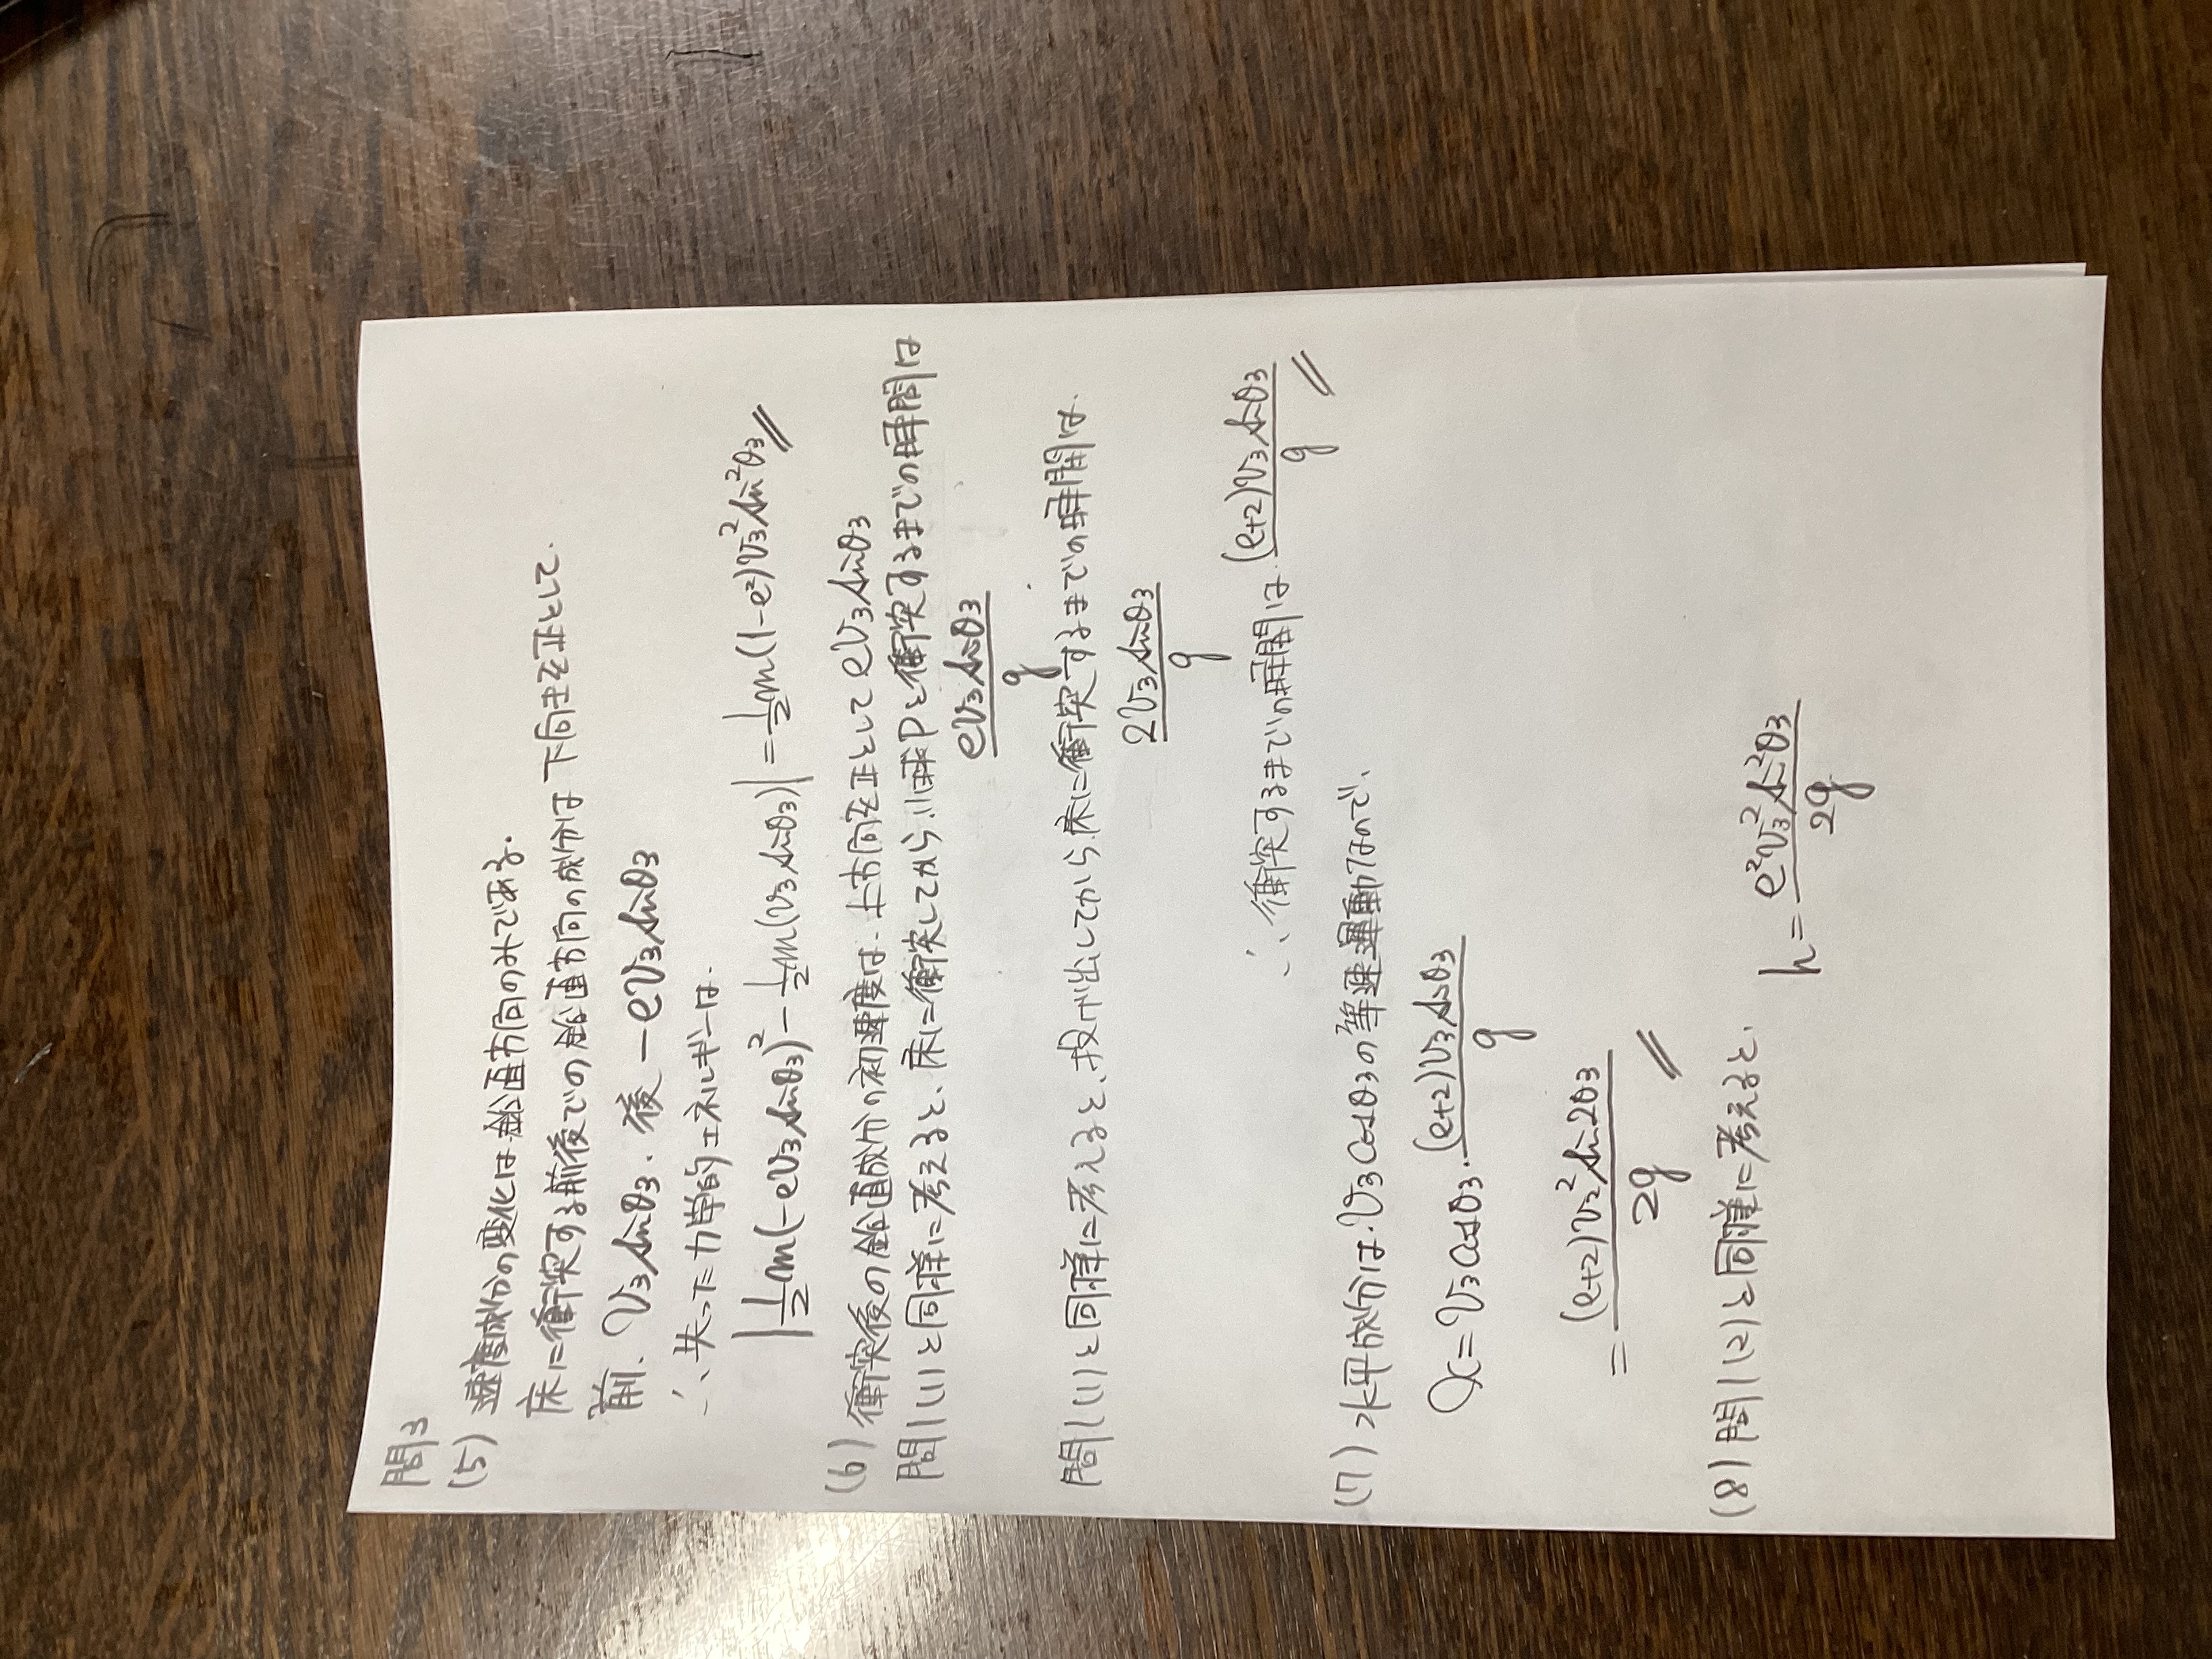 問3
(5) 速度成分の変化は鉛直方向のみである.
床に衝突する前後での鉛直方向の成分は下向きを正として.
前、v₃sinθ₃. 後 −ev₃sinθ₃
∴失った力学的エネルギーは.
|½m(−ev₃sinθ₃)²−½m(v₃sinθ₃)|=½m(1−e²)v₃²sin²θ₃//
(6) 衝突後の鉛直成分の初速度は. 上方向を正として ev₃sinθ₃
問1(1)と同様に考えると、床に衝突してから小球Pと衝突するまでの時間は
ev₃sinθ₃/g
問1(1)と同様に考えると、投げ出してから床に衝突するまでの時間は.
2v₃sinθ₃/g
∴衝突するまでの時間は. (e+2)v₃sinθ₃/g //
(7) 水平成分は. v₃cosθ₃の等速運動なので、
x=v₃cosθ₃·(e+2)v₃sinθ₃/g
=(e+2)v₂²sin2θ₃/2g //
(8) 問1(2)と同様に考えると、 h=e²v₃²sin²θ₃/2g